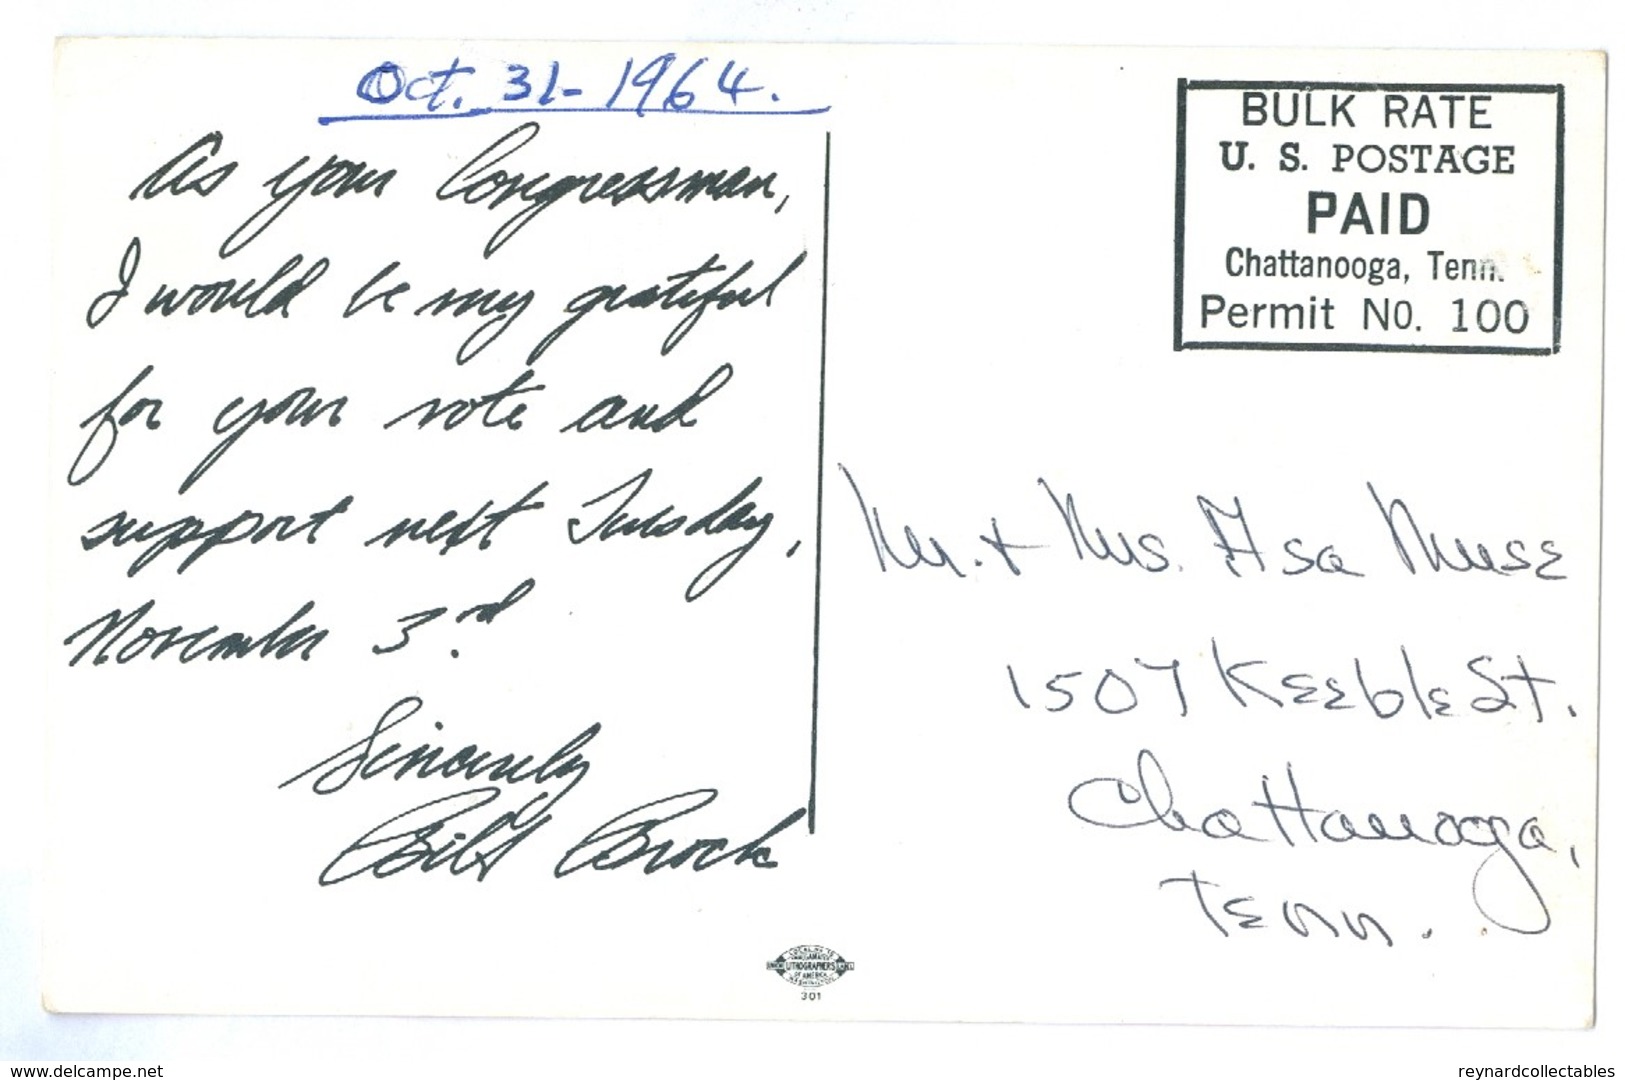 Oct. 31-1964.
As your Congressman,
I would be my grateful
for your vote and
support next Tuesday,
November 3rd.
Sincerely
Bill Brock
BULK RATE
U. S. POSTAGE
PAID
Chattanooga, Tenn.
Permit No. 100
Mr. + Mrs. Asa Muse
1507 Keeble St.
Chattanooga,
Tenn.
LITHOGRAPHERS
OF AMERICA
301
www.delcampe.net
reynardcollectables